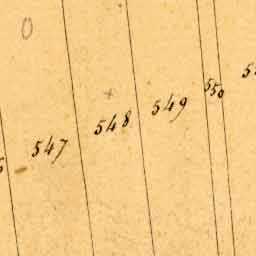 0
547
548
549
550